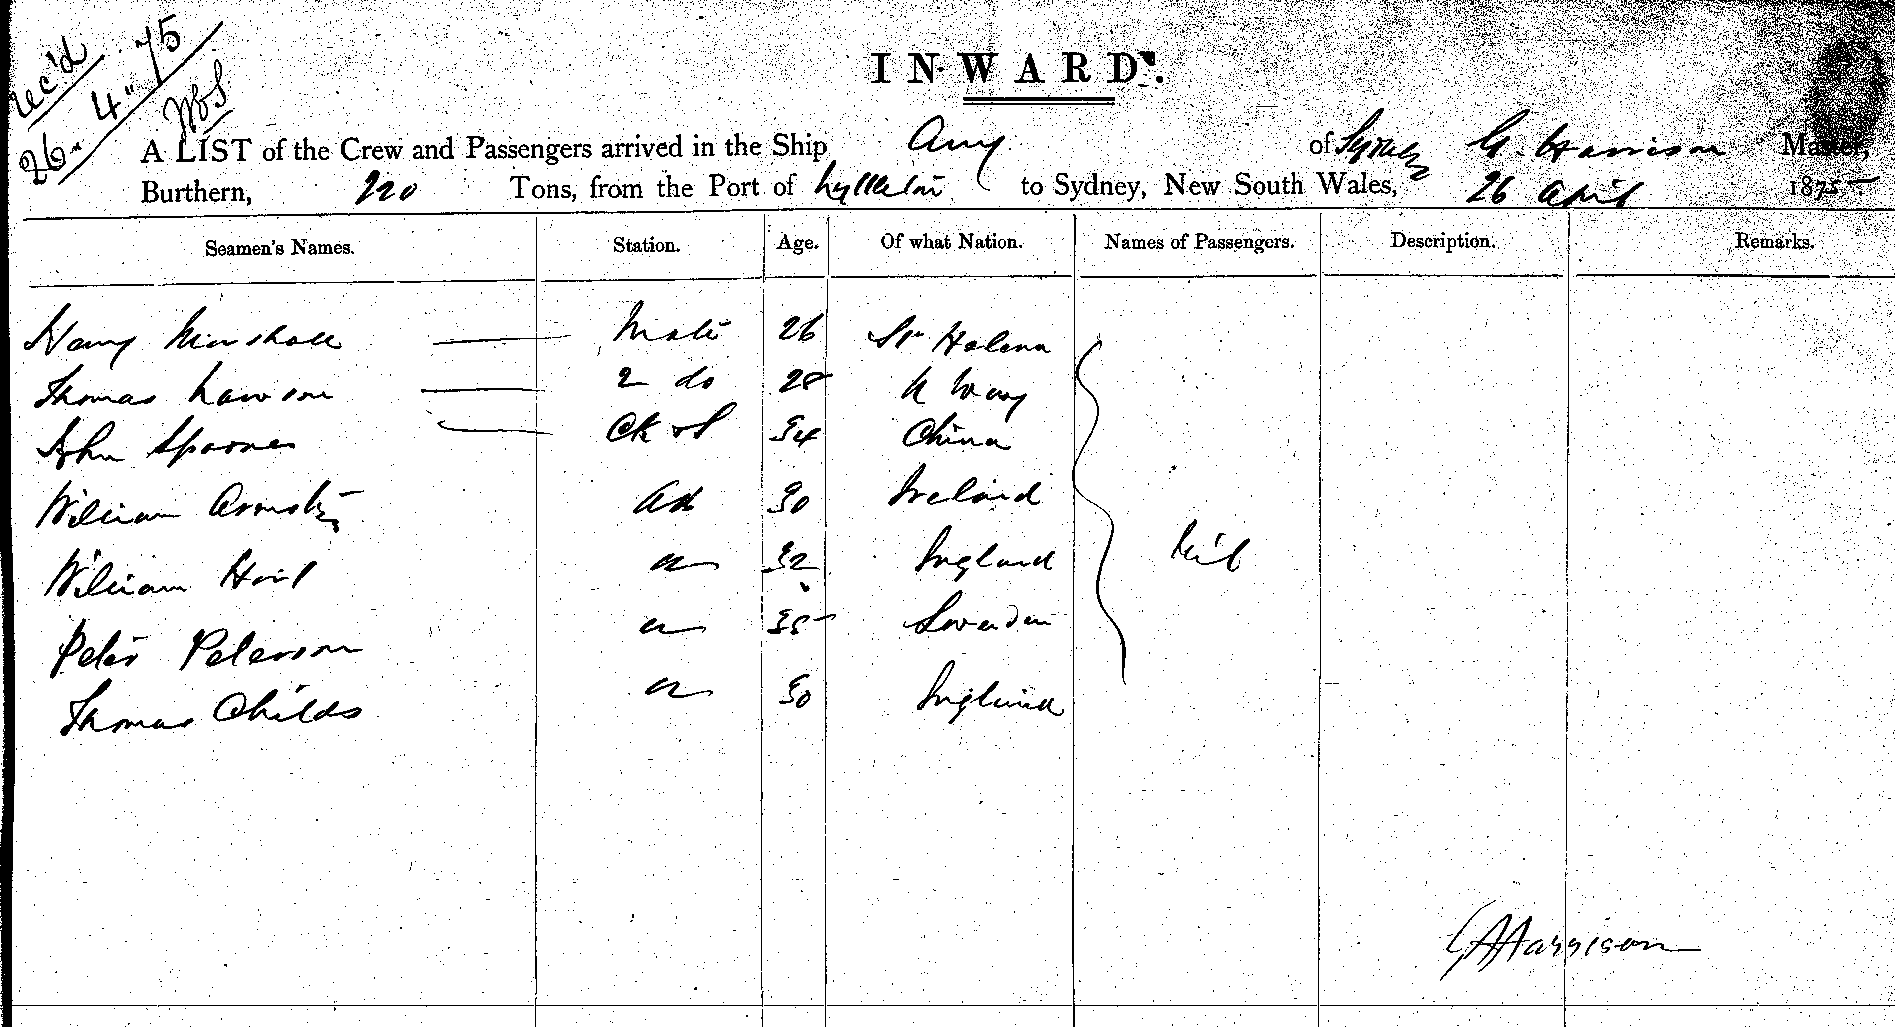 rec'd
26. 4" 75
INWARD.
A LIST of the Crew and Passengers arrived in the Ship Amy of Sydney G. Harrison Master,
Burthern, 220 Tons, from the Port of Lyttleton to Sydney, New South Wales, 26 April 1875
Seamen's Names. Station. Age. Of what Nation. Names of Passengers. Description. Remarks.
Harry Marshall Mate 26 St Helena
Thomas Lawson 2 do 28 N Way
John Spooner Ck & S 34 China
William AB 30 Ireland
William 32 England
Peter Peterson 35 Sweden
Thomas Childs 30 England
Nil
GHarrison